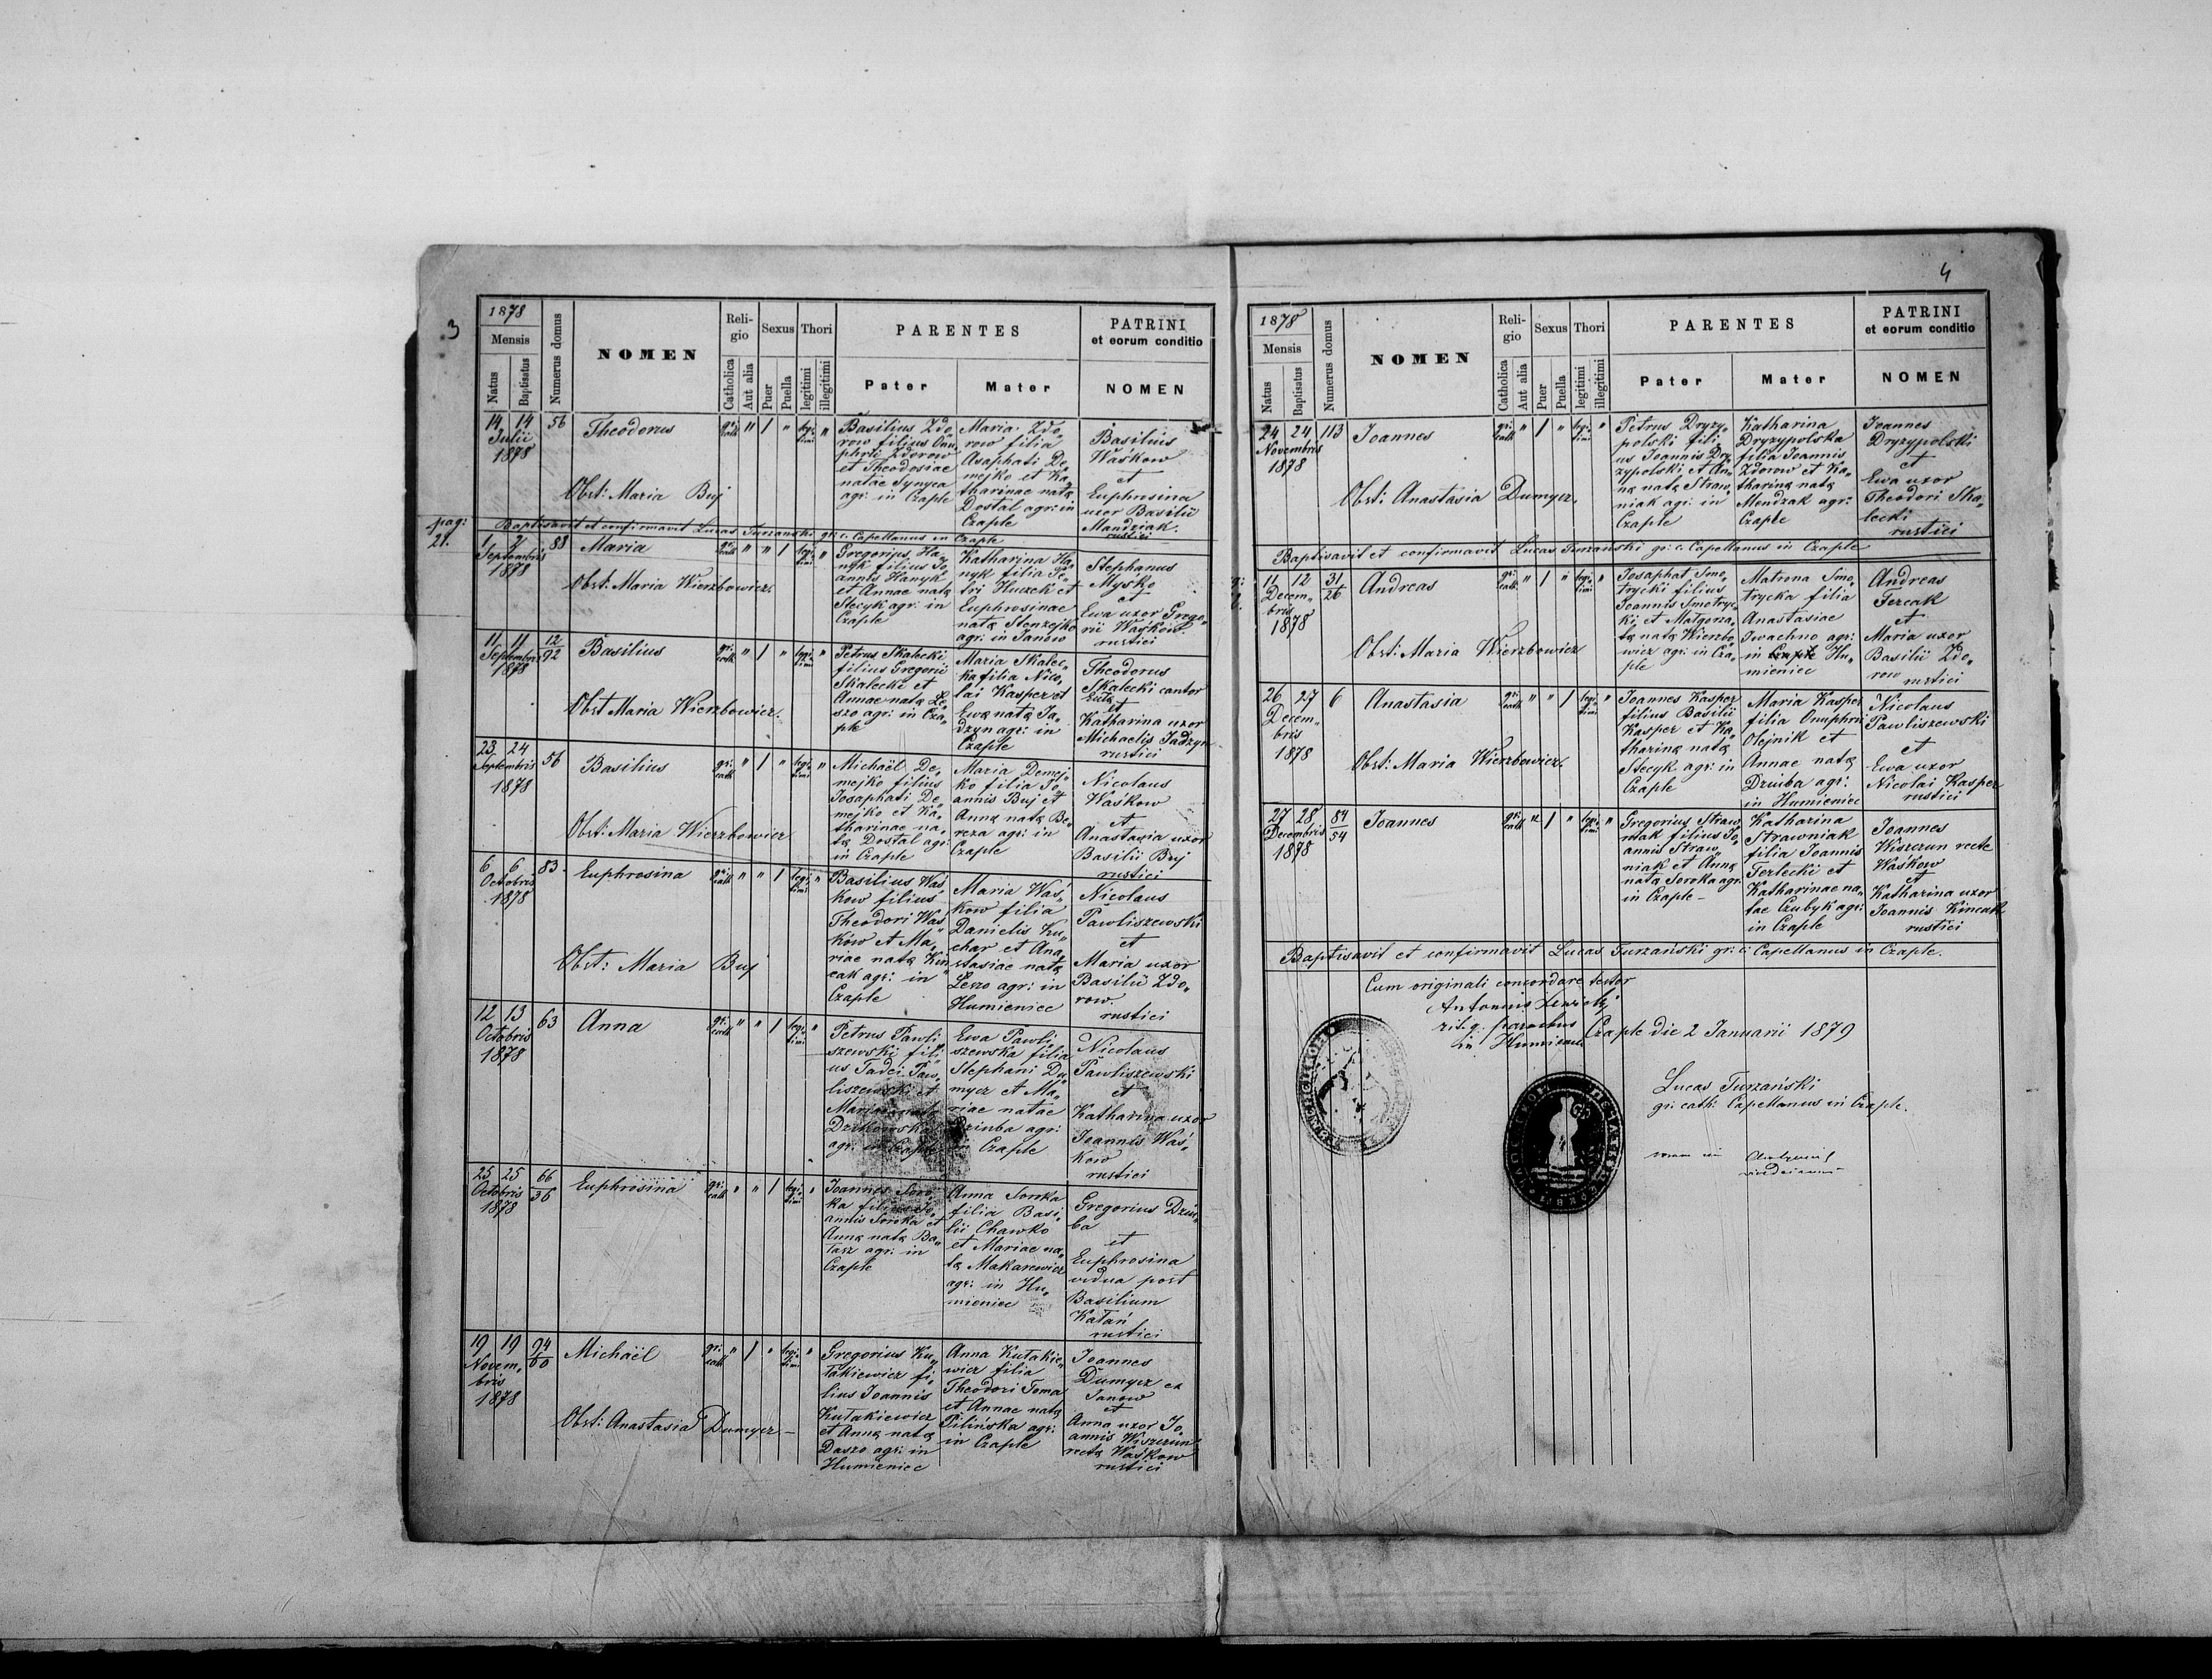 3
1878
Mensis
Natus
Baptisatus
Numerus domus
NOMEN
Reli-
gio
Catholica
Aut alia
Sexus
Puer
Puella
Thori
legitimi
illegitimi
PARENTES
Pater
Mater
PATRINI
et eorum conditio
NOMEN
14 14 56
Julii
1878
Theodorus
Obst: Maria Buj
gr:
cath " / " legi
timi "
Basilius Zdo„
row filius Onu„
phrii Zdorow
et Theodosiae
natae Synyca
agr: in Czaple
Maria Zdo„
row filia
Asaphati De„
mejko et Ka„
tharinae natæ
Dostal agr: in
Czaple
Basilius
Waśkow
et
Euphrosina
uxor Basilii
Mandziak.
rustici
pag:
21.
Baptisavit et confirmavit Lucas Turzański gr: c. Capellanus in Czaple
1 2 88
Septembris
1878
Maria
Obst: Maria Wierzbowicz.
gr:
cath " " / legi
timi "
Gregorius Ha„
nyk filius Jo„
annis Hanyk
et Annae natæ
Stecyk agr: in
Czaple
Katharina Ha„
nyk filia Pe„
tri Huzek et
Euphrosinae
natæ Stenzejko
agr: in Janow
Stephanus
Mysko
et
Ewa uxor Grego„
rii Waśkow.
rustici
11 11 12/92
Septembris
1878
Basilius
Obst Maria Wierzbowicz.
gr:
cath " / " legi
timi "
Petrus Skalecki
filius Gregorii
Skalecki et
Annae natæ Le„
szo agr: in Cza„
ple
Maria Skalec„
ka filia Nico„
lai Kasper et
Ewæ natæ Ja„
dzyn agr: in
Czaple
Theodorus
Skalecki cantor
et
Katharina uxor
Michaelis Jadzyn
rustici
23 24 56
Septembris
1878
Basilius
Obst: Maria Wierzbowicz
gr:
cath " / " legi
timi "
Michaël De„
mejko filius
Josaphati De„
mejko et Ka„
tharinae na„
tæ Dostal agr:
in Czaple
Maria Demej„
ko filia Jo„
annis Buj et
Annæ natæ Be„
reza agr: in
Czaple
Nicolaus
Waśkow
et
Anastasia uxor
Basilii Buj
rustici
6 6 83.
Octobris
1878
Euphrosina
Obst: Maria Buj
gr:
cath " " / legi
timi "
Basilius Waś„
kow filius
Theodori Waś„
kow et Ma„
riae natæ Kin„
cak agr: in
Czaple
Maria Waś„
kow filia
Danielis Ku„
char et Ana„
stasiae natæ
Leszo agr: in
Humieniec
Nicolaus
Pawliszewski
et
Maria uxor
Basilii Zdo„
row.
rustici
12 13 63
Octobris
1878
Anna
gr:
cath " " / legi
timi "
Petrus Pawli„
szewski fili„
us Tadei Paw„
liszewski et
Mariae natæ
Dzikowska
agr: in Czaple
Ewa Pawli„
szewska filia
Stephani Du„
mycz et Ma„
riae natae
Dziuba agr:
in Czaple
Nicolaus
Pawliszewski
et
Katharina uxor
Joannis Waś„
kow
rustici
25 25 66/36
Octobris
1878
Euphrosina
gr:
cath " " / legi
timi "
Joannes Soro„
ka filius Jo„
annis Soroka et
Annæ natæ Ba„
łasz agr: in
Czaple
Anna Soroka
filia Basi„
lii Chawko
et Mariae na„
tæ Makarewicz
agr: in Hu„
mieniec
Gregorius Dziu„
ba
et
Euphrosina
vidua post
Basilium
Katań
rustici
19 19 94/60
Novem„
bris
1878
Michaël
Obst: Anastasia Dumycz –
gr:
cath " / " legi
timi "
Gregorius Ku„
łakiewicz fi„
lius Joannis
Kułakiewicz
et Annæ natæ
Daszo agr: in
Humieniec
Anna Kułakie„
wicz filia
Theodori Toma
et Annae natæ
Pilińska agr:
in Czaple
Joannes
Dumycz ex
Janow
et
Anna uxor Jo„
annis Wiszczun
recte Waśkow
rustici
4
1878
Mensis
Natus
Baptisatus
Numerus domus
NOMEN
Reli-
gio
Catholica
Aut alia
Sexus
Puer
Puella
Thori
legitimi
illegitimi
PARENTES
Pater
Mater
PATRINI
et eorum conditio
NOMEN
24 24 113
Novembris
1878
Joannes
Obst: Anastasia Dumycz.
gr:
cath " / " legi
timi "
Petrus Dryzy„
polski fili„
us Joannis Dry„
zypolski et An„
næ natæ Straw„
niak agr: in
Czaple
Katharina
Dryzypolska
filia Joannis
Zdorow et Ka„
tharinæ natæ
Mendzak agr:
Czaple
Joannes
Dryzypolski
et
Ewa uxor
Theodori Ska„
lecki
rustici
Baptisavit et confirmavit Lucas Turzański gr: c. Capellanus in Czaple
11 12 31/26
Decem„
bris
1878
Andreas
Obst: Maria Wierzbowicz
gr:
cath. " / " legi
timi "
Josaphat Smo„
trycki filius
Joannis Smotryc„
ki et Małgorza„
tæ natæ Wierzbo„
wicz agr: in Cza„
ple
Matrona Smo„
trycka filia
Anastasiae
Iwachno agr:
in Czaple Hu„
mieniec
Andreas
Fercak
et
Maria uxor
Basilii Zdo„
row
rustici
26 27 6
Decem„
bris
1878
Anastasia
Obst: Maria Wierzbowicz.
gr:
cath " " / legi
timi "
Joannes Kasper
filius Basilii
Kasper et Ka„
tharinæ natæ
Stecyk agr: in
Czaple
Maria Kasper
filia Onuphrii
Olejnik et
Annae natæ
Dziuba agr:
in Humieniec
Nicolaus
Pawliszewski
et
Ewa uxor
Nicolai Kasper
rustici
27 28 84/54
Decembris
1878
Joannes
gr:
cath " / " legi
timi "
Gregorius Straw„
niak filius Jo„
annis Straw„
niak et Annæ
natæ Soroka agr:
in Czaple –
Katharina
Strawniak
filia Joannis
Terlecki et
Katharinae na„
tae Czubyk agr:
in Czaple
Joannes
Wiszczun recte
Waśkow
et
Katharina uxor
Joannis Kincak
rustici
Baptisavit et confirmavit Lucas Turzański gr: c: Capellanus in Czaple.
Cum originali concordare testor
Antonius
rit. g. parochus
in Humieniec
Czaple die 2 Januarii 1879
Lucas Turzański
gr: cath: Capellanus in Czaple.